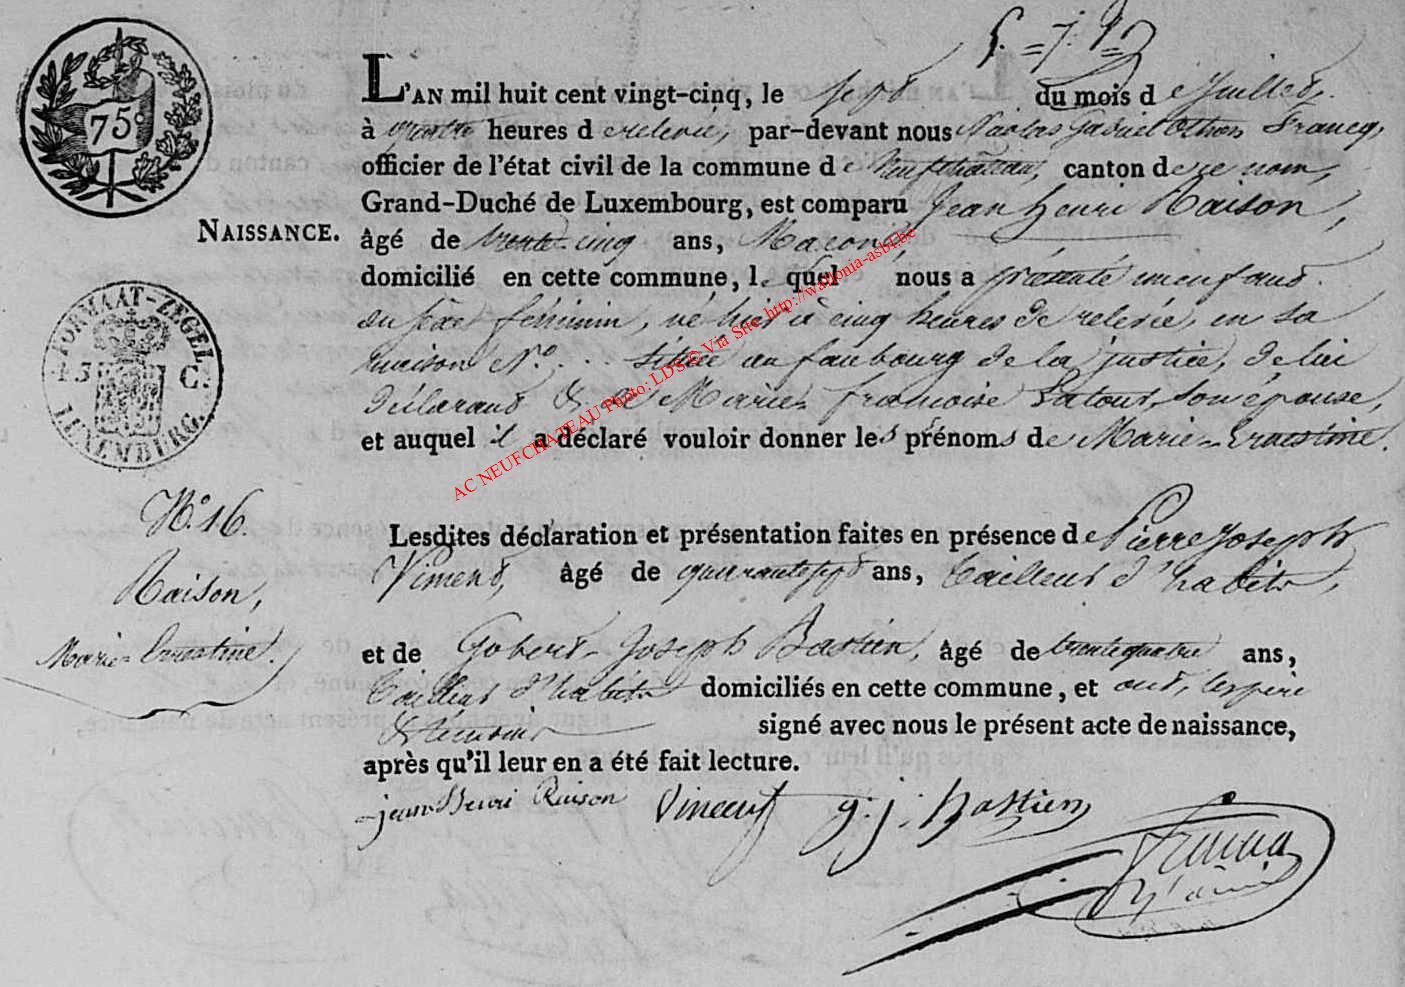 75c
FORMAAT-ZEGEL
15 C.
LUXEMBURG.
L'AN mil huit cent vingt-cinq, le sept du mois de Juillet,
à quatre heures de relevée, par-devant nous Nicolas Gabriel Othon Francq,
officier de l'état civil de la commune de Neufchâteau, canton de ce nom,
Grand-Duché de Luxembourg, est comparu Jean henri Raison,
NAISSANCE.
âgé de trente-cinq ans, Maçon,
domicilié en cette commune, lequel nous a présenté un enfant
du sexe féminin, né hier à cinq heures de relevée, en sa
maison No. .. située au faubourg de la justice, de lui
déclarant & de Marie françoise Latour, son épouse,
et auquel il a déclaré vouloir donner les prénoms de Marie-Ernestine.
AC NEUFCHATEAU Photo: LDS © Via Site http://wallonia-asbl.be
No. 16.
Raison,
Marie-Ernestine.
Lesdites déclaration et présentation faites en présence de Pierre Joseph
âgé de quarante sept ans, tailleur d'habits,
et de Gobert-Joseph Bastien, âgé de trente quatre ans,
tailleur d'habits domiciliés en cette commune, et ont, les père
& témoins signé avec nous le présent acte de naissance,
après qu'il leur en a été fait lecture.
jean henri Raison
g. j. Bastien